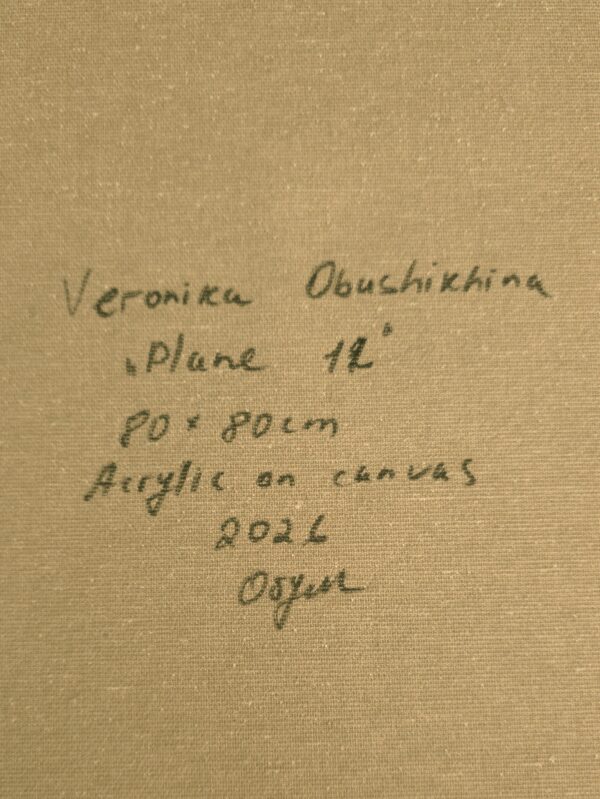 Veronika Obushikhina
„Plane 12"
80 × 80 cm
Acrylic on canvas
2026